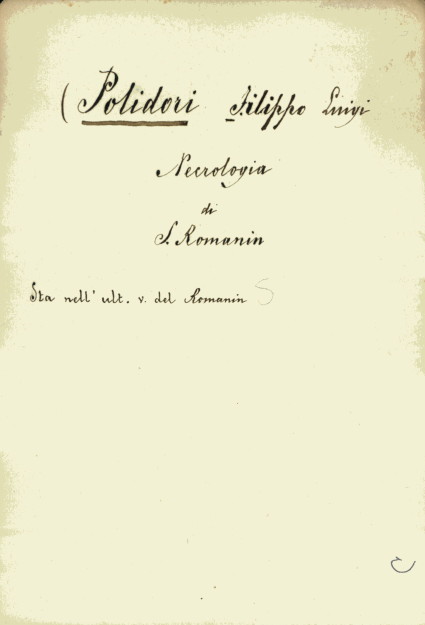 (Polidori Filippo Luigi
Necrologia
di
S. Romanin
Sta nell' ult. v. del Romanin